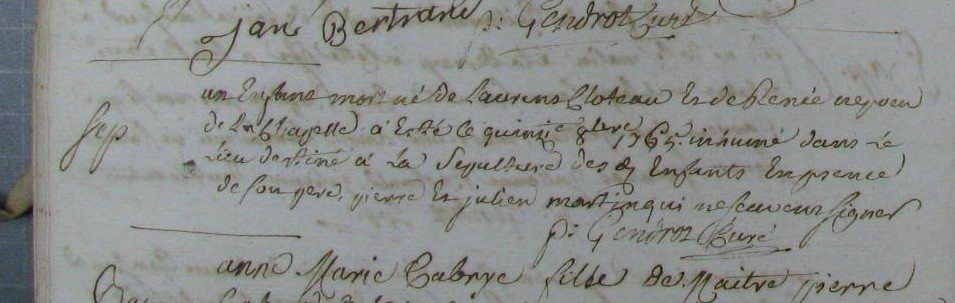 Jan Bertrand p: Gendrot Curé
un Enfant mort né de Laurens Cloteau Et de Renée
Sep
de La Chapelle à Esté Le quinze 8bre 1765 inhumé dans Le
Lieu destiné à La Sepulture des Enfants En presence
de son pere, pierre Et julien martin qui ne scavent signer
p: Gendrot Curé
anne Marie fille de Maitre pierre